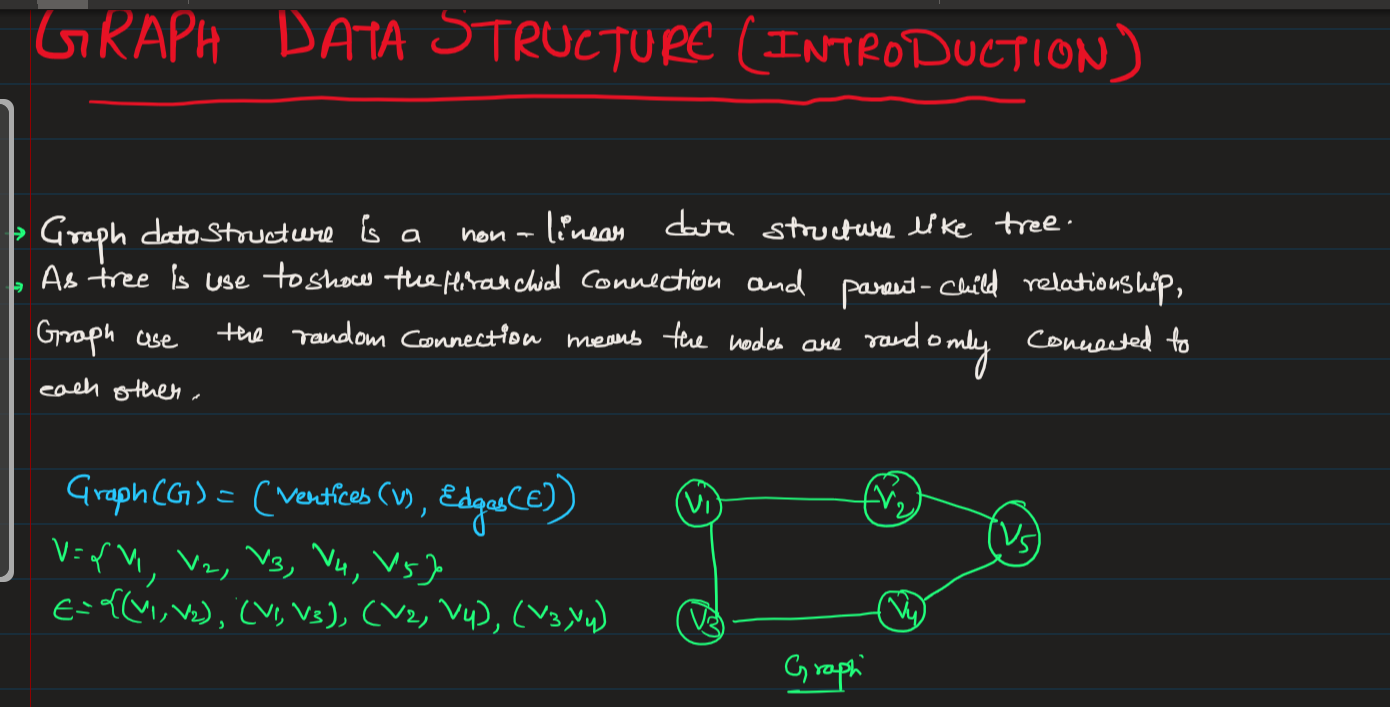 GRAPH DATA STRUCTURE (INTRODUCTION)
→ Graph data structure is a non-linear data structure like tree.
→ As tree is use to show the Hirarchial connection and parent-child relationship,
Graph use the random connection means the nodes are randomly connected to
each other.
Graph(G) = (Vertices(V), Edges(E))
V={V1, V2, V3, V4, V5}
E={(V1,V2), (V1,V3), (V2,V4), (V3,V4)
V1
V2
V5
V3
V4
Graph